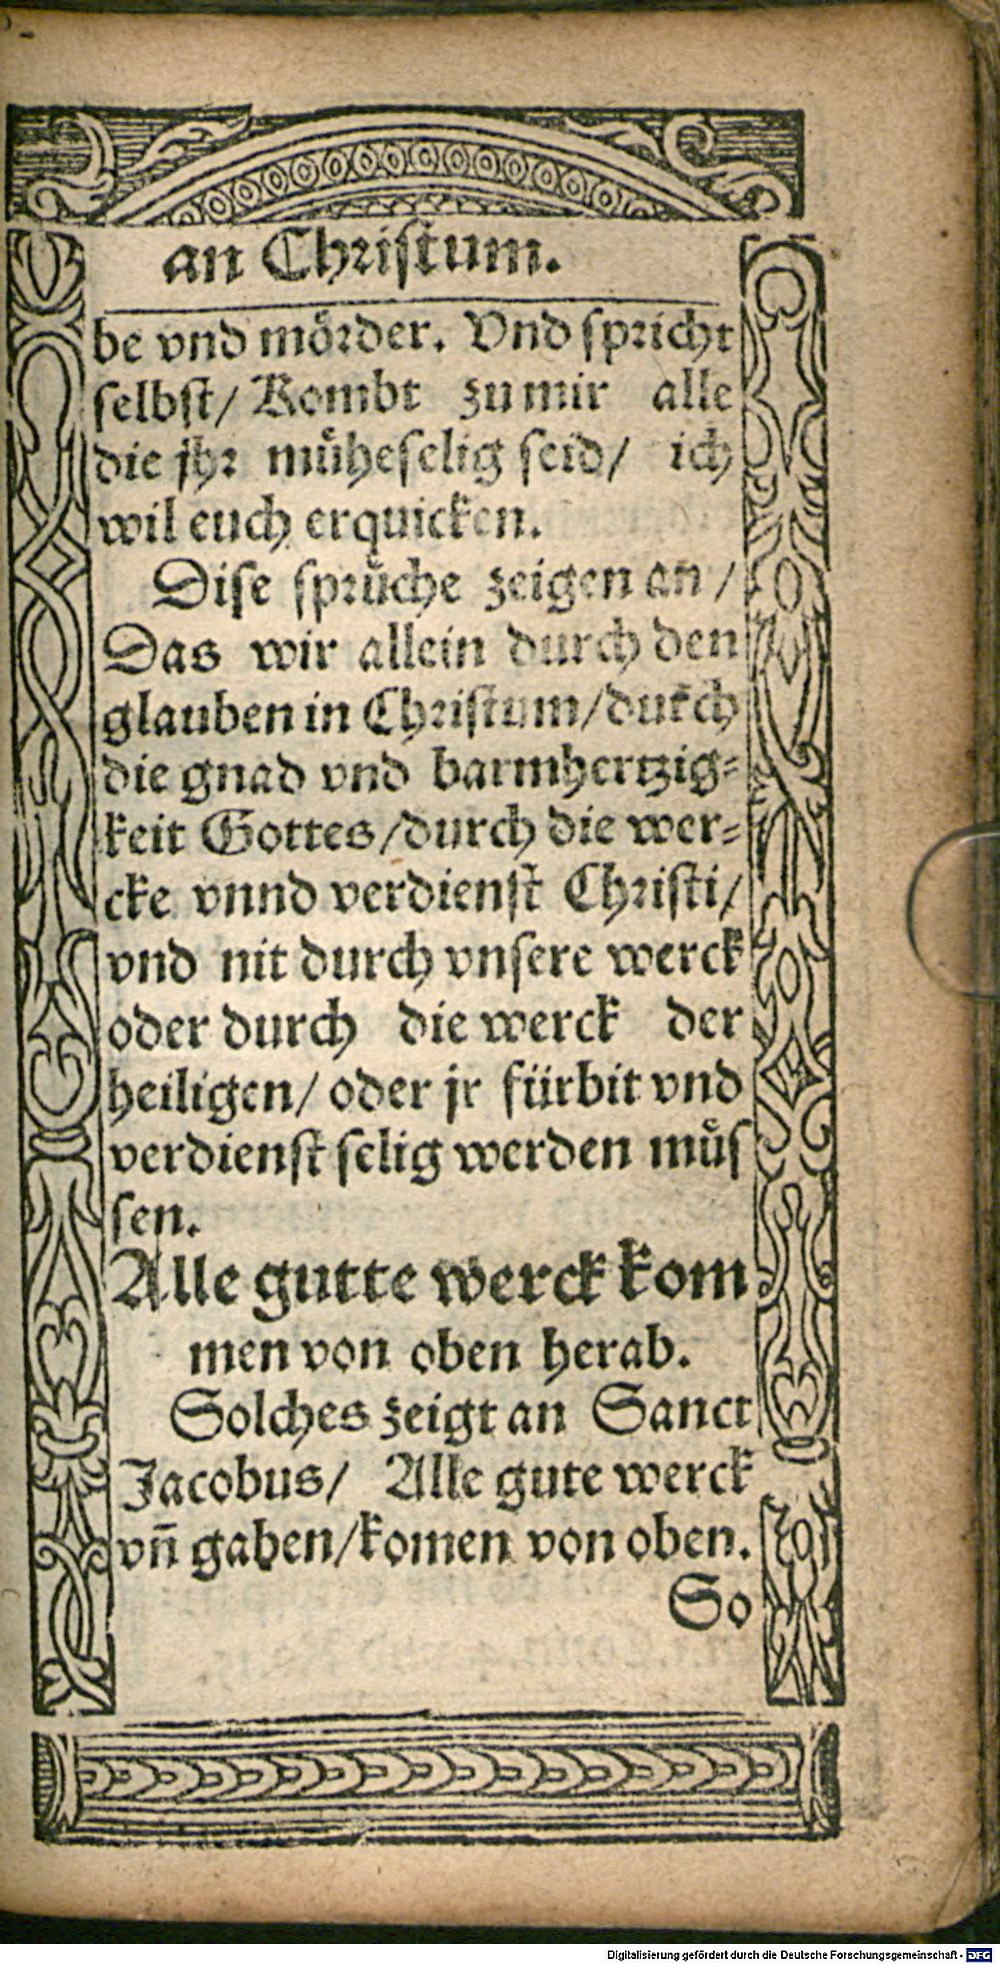 an Christum.
be vnd moͤrder. Vnd spricht
selbst/ Kombt zu mir alle
die jhr muͤheselig seid/ ich
wil euch erquicken.
Dise spruͤche zeigen an /
Das wir allein durch den
glauben in Christum/durch
die gnad vnd barmhertzig⸗
keit Gottes/durch die wer⸗
cke vnnd verdienst Christi/
vnd nit durch vnsere werck
oder durch die werck der
heiligen/ oder jr fürbit vnd
verdienst selig werden muͤs
sen.
Alle gutte werck kom
men von oben herab.
Solches zeigt an Sanct
Jacobus/ Alle gute werck
vn̄ gaben/komen von oben.
So
Digitalisierung gefördert durch die Deutsche Forschungsgemeinschaft - DFG